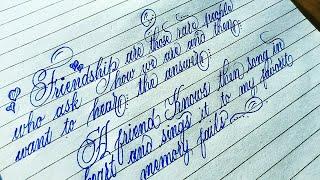 Friendship are those rare people
who ask how we are and then
want to hear the answer
A friend Knows then song in
heart and sings it to my
memory fails